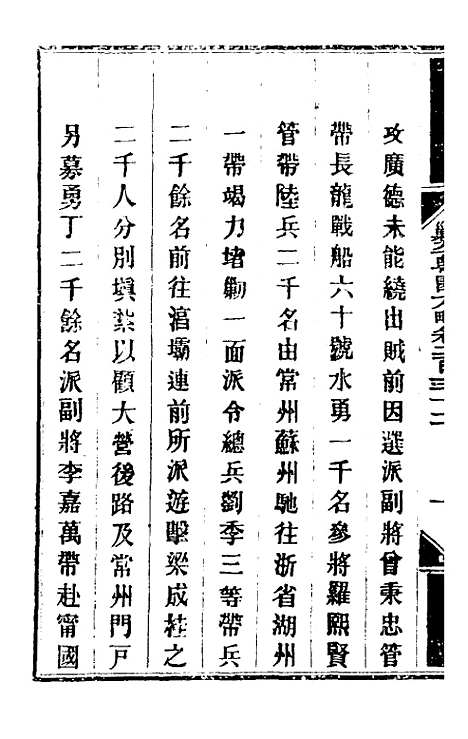 攻廣德未能繞出賊前因選派副將曾秉忠管
帶長龍戰船六十號水勇一千名參將羅熙賢
管帶陸兵二千名由常州蘇州馳往浙省湖州
一帶竭力堵勦一面派令總兵劉季三等帶兵
二千餘名前往湻壩連前所派遊擊梁成桂之
二千人分別塡紮以顧大營後路及常州門戸
另募勇丁二千餘名派副將李嘉萬帶赴甯國